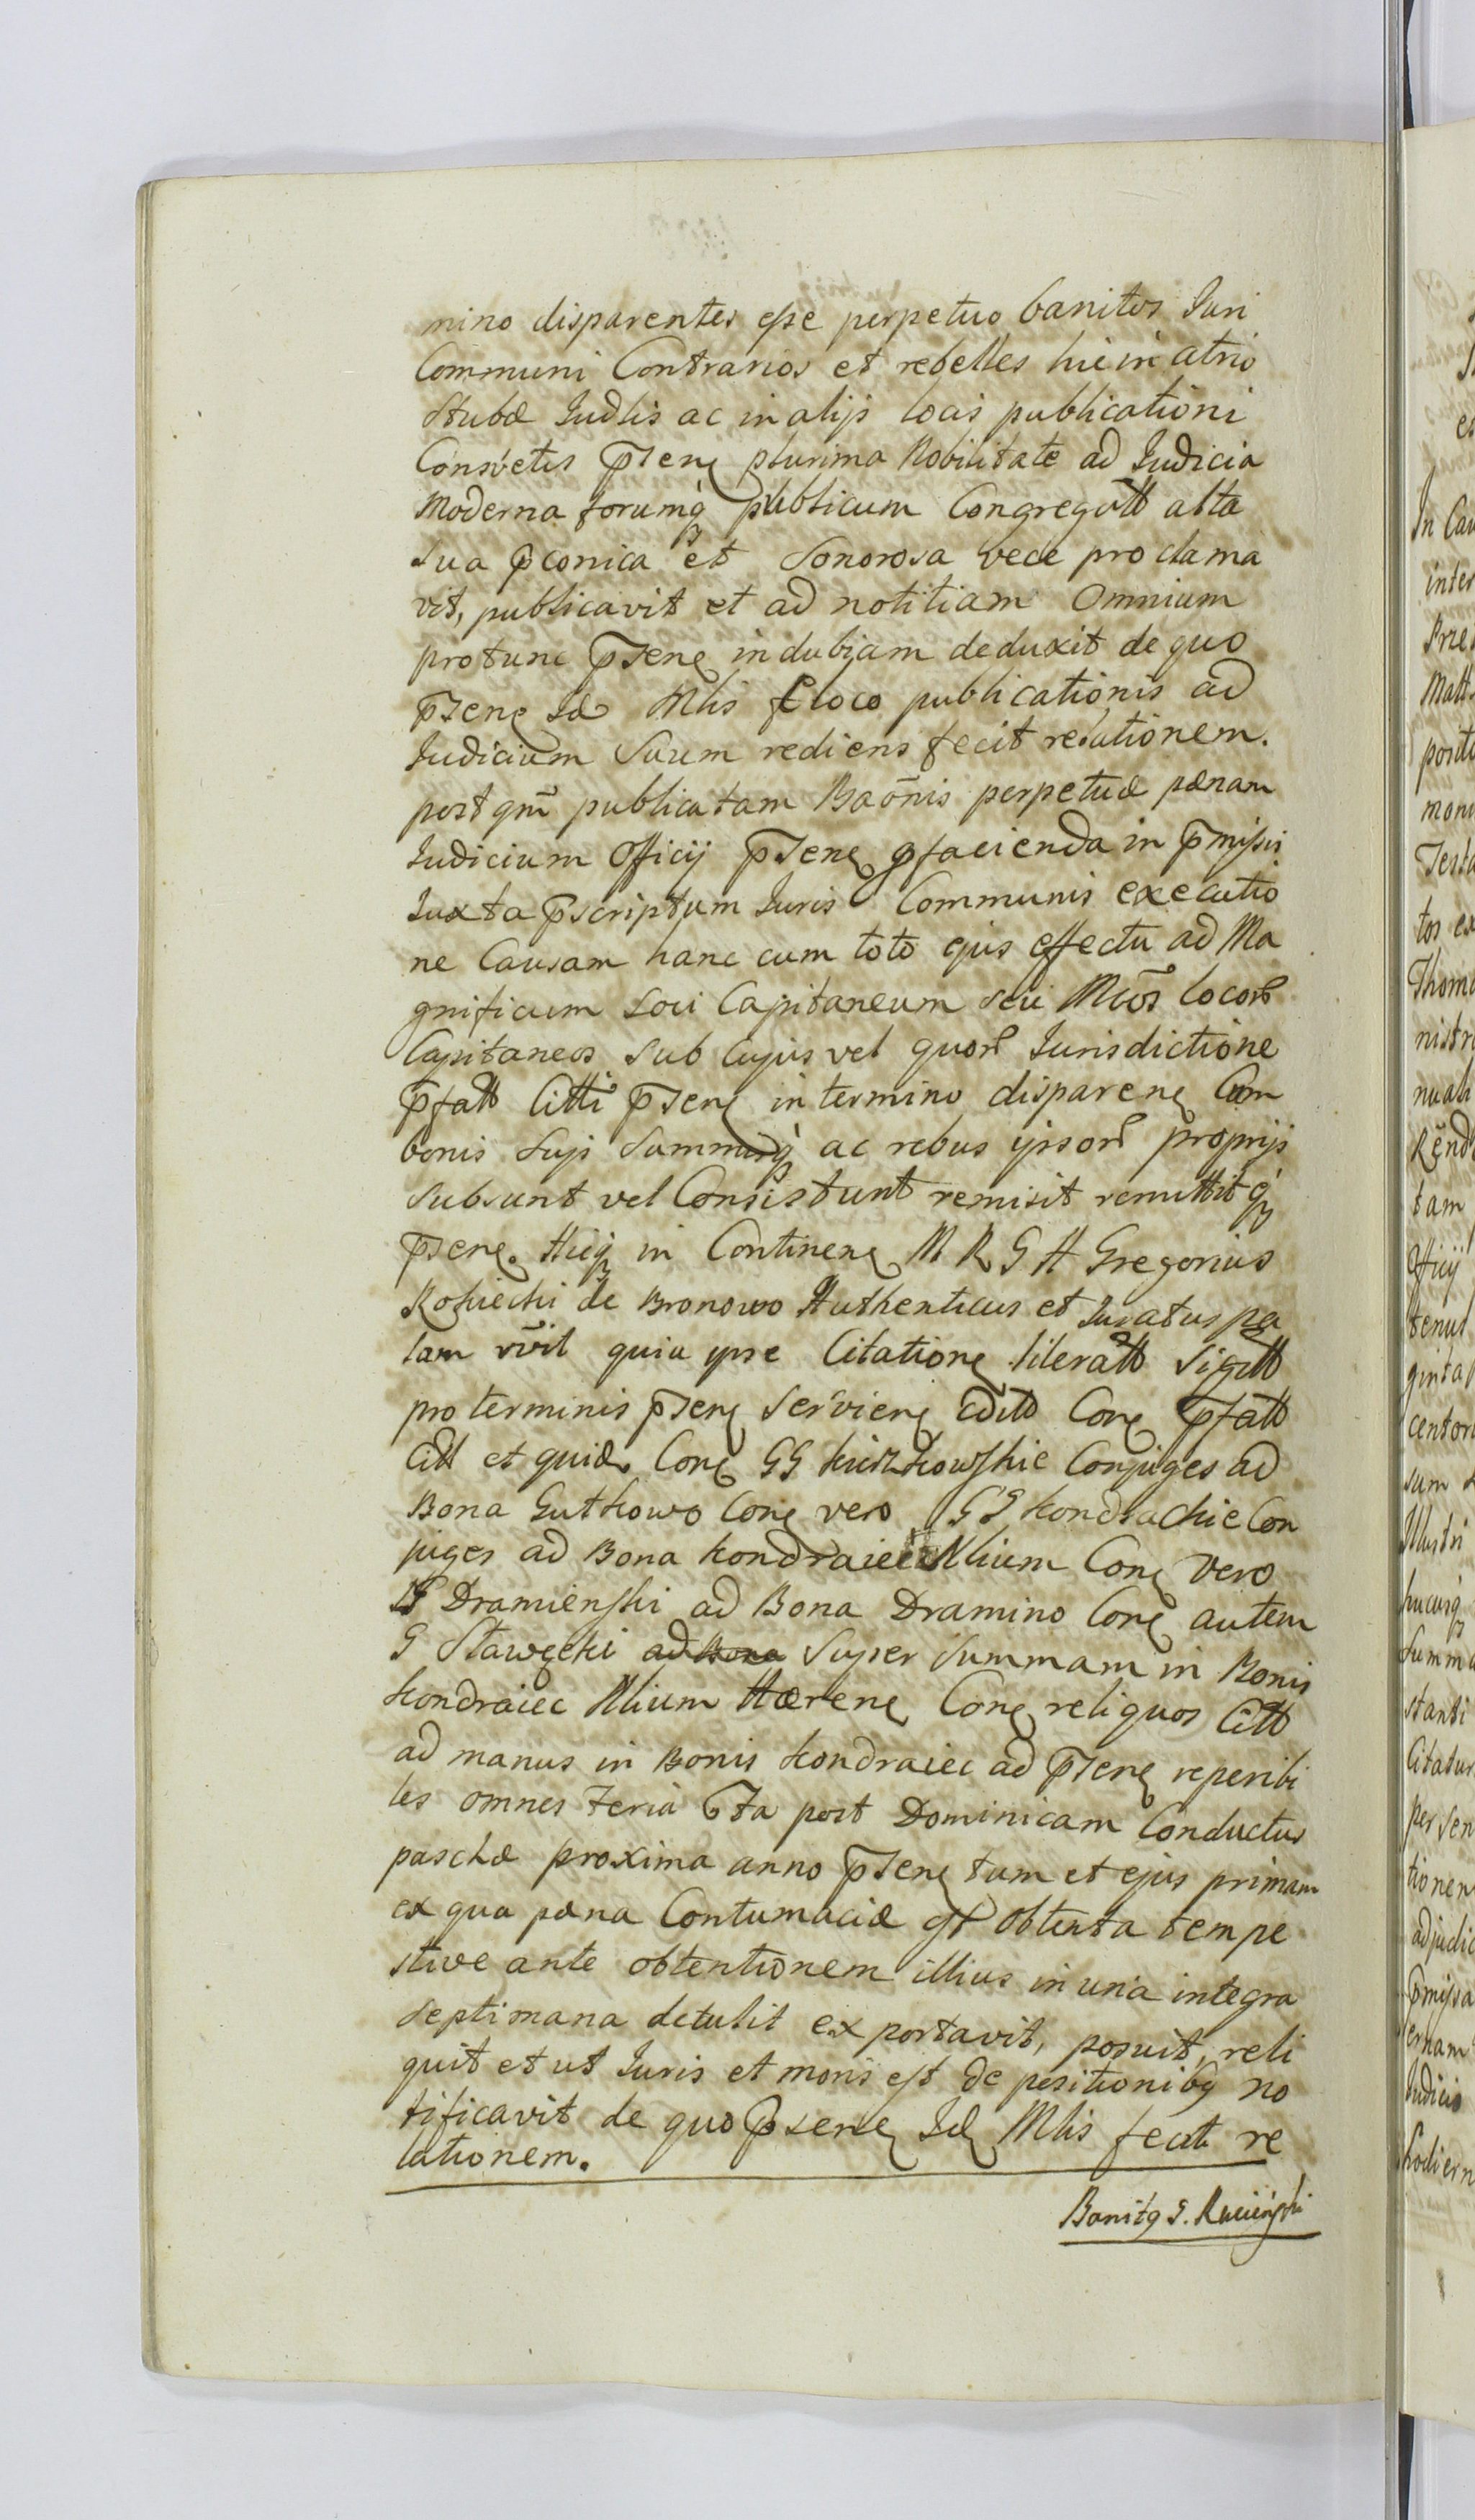 mino disparentes esse perpetuo banitos Juri
Communi Contrarios et rebelles hic in atrio
Stubæ Judlis ac in alijs locis publicationi
Consvetis p̃sen plurima Nobilitate ad Judicia
Moderna forumq publicum Congregatt alta
sua p̃conica et Sonorosa voce proclama
vit, publicavit et ad notitiam Omnium
protunc p̃sen indubiam deduxit de quo
p̃sen Id Mlis e loco publicationis ad
Judicium Suum rediens fecit relationem.
post qm̃ publicatam Baõnis perpetuæ pænam
Judicium Officij p̃sen p facienda in p̃missis
Juxta p̃scriptum Juris Communis executio
ne Causam hanc cum toto ejus effectu ad Ma
gnificum Loci Capitaneum seu Mcos locor
Capitaneos Sub cujus vel quor Jurisdictione
p̃fatt Citti p̃sen in termino disparen Cum
bonis suis summisq ac rebus ipsor proprijs
subsunt vel Consistunt remisit remittitq
p̃sen. Hicq in Continen M R G H Gregorius
de Bronowo Authenticus et Juratus pa
lam rvit quia ipse Citation literatt Sigtt
pro terminis p̃sen Servien edit Con p̃fatt
Citt et quid Con GG Conjuges ad
Bona Gutkowo Con vero GG Kondrackie Con
juges ad Bona Kondraiec Nlium Con vero
G Dramienski ad Bona Dramino Con autem
G Stawecki ad Bona Super Summam in Bonis
Kondraiec Nlium Hæren Con reliquos Citt
ad manus in Bonis Kondraiec ad p̃sen reperibi
les omnes feria 6ta post Dominicam Conductus
paschæ proxima anno p̃sen tum et ejus primam
ex qua pæna Contumaciæ est obtenta tempe
stive ante obtentionem illius in una integra
septimana detulit exportavit, posuit, reli
quit et ut Juris et moris est de positionibq no
tificavit de quo p̃sen Id Mlis fecit re
lationem.
Banitq G.